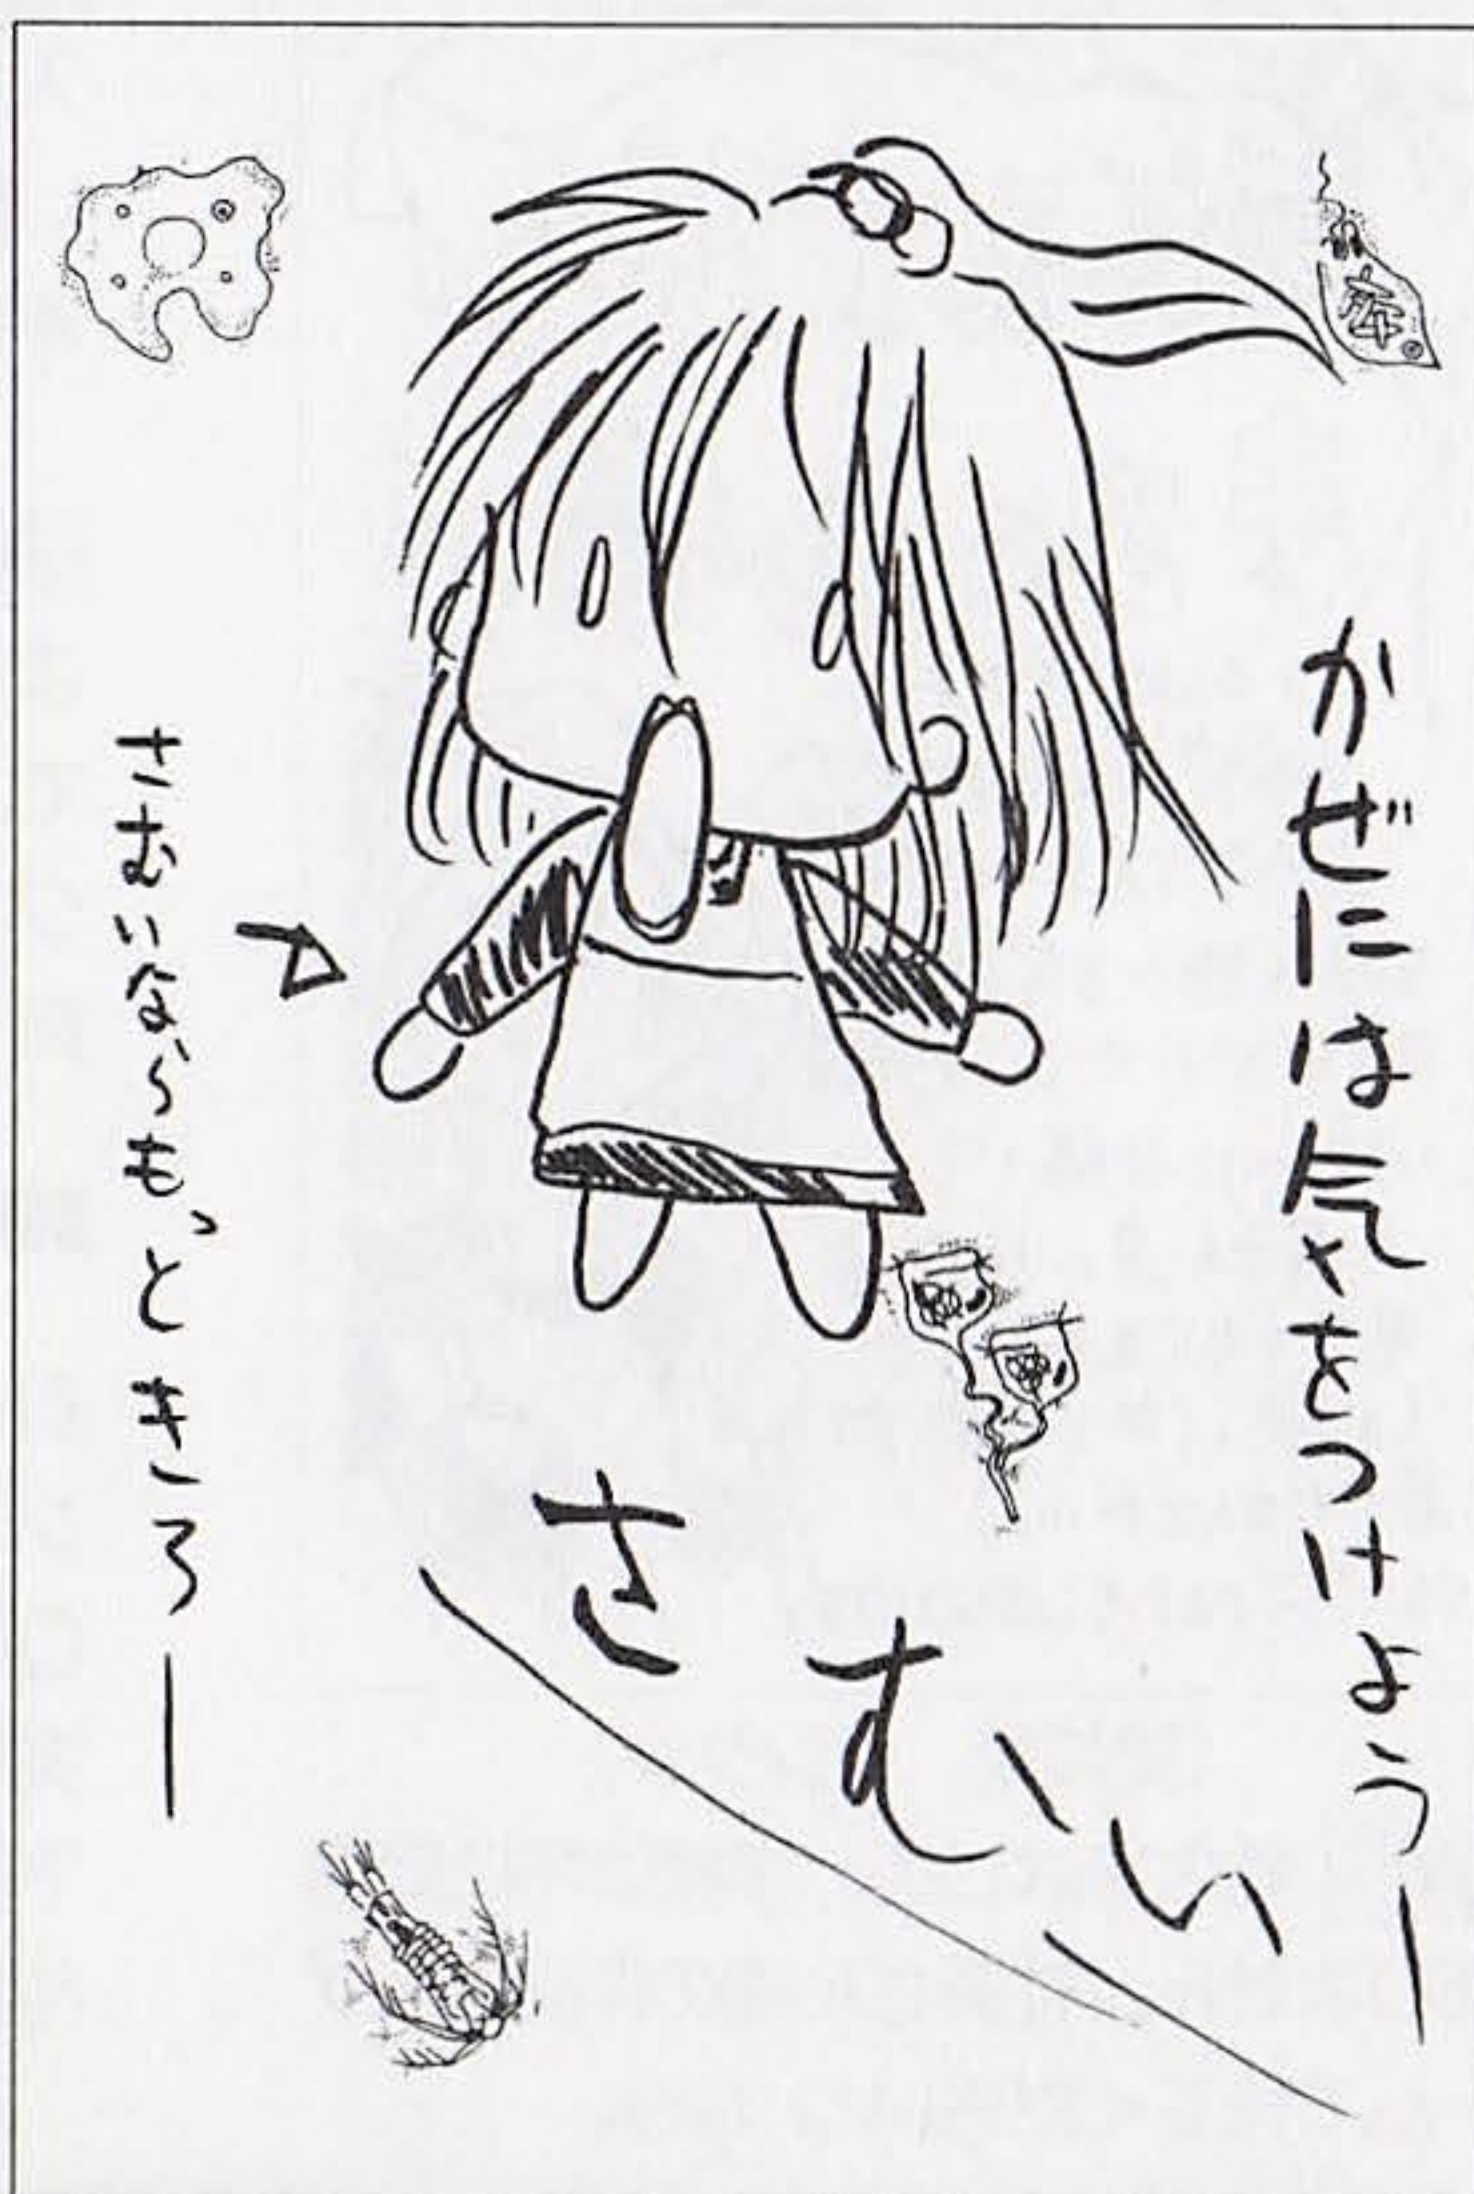 かぜには気をつけようー
さむい
さむいならもっときろー